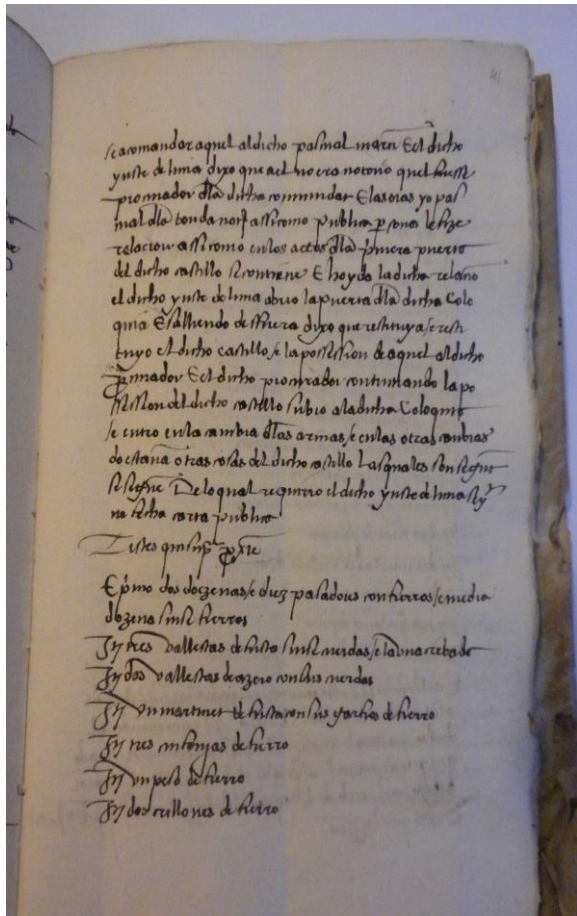 41
se acomandar aquel al dicho pascual E el dicho
yuste de luna dixo que a el no era notorio quel fuesse
procurador dla dicha comunidat E las oras yo pas
cual dla tonda not assi como publica psona le fize
relacion assi como en los actos dla pmera puerta
del dicho castillo se contiene E hoyda la dicha relacion
el dicho yuste de luna abrio la puerta dla dicha Colo
quia E salliendo de fuera dixo que restituya /e resti
tuyo el dicho castillo /e la possession de aquel al dicho
pcurador E el dicho procurador continuando la po
sission del dicho castillo subio a la dicha Coloquia
/e entro en la cambra dlas armas /e en las otras cambras
do estavā otras cosas del dicho castillo Las quales son segūt
se sigue De lo qual requirio el dicho yuste de luna
na fecha carta publica
Testes qui supra
E pmo dos dozenas /e diez passadores con fierros /e media
dozena sines fierros
It tres vallestas de fusta sines cuerdas /e la una
It dos vallestas de azero con sus cuerdas
It un martinet de fusta con sus garfios de fierro
It tres de fierro
It un peso de fierro
It dos de fierro